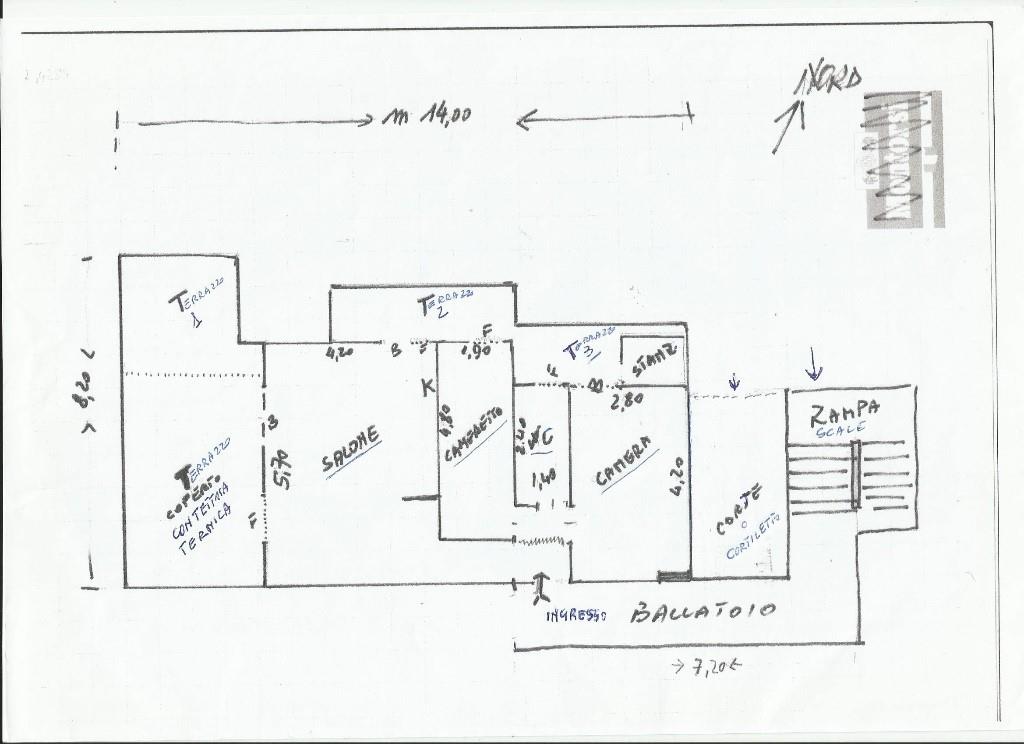 NORD
m 14,00
TERRAZZO
1
TERRAZZO
2
TERRAZZO
3
STANZ
8,20
4,20
B
F
F
1,90
F
2,80
K
4,80
CAMERETTO
2,40
WC
1,40
CAMERA
4,20
RAMPA
SCALE
B
5,70
SALONE
F
TERRAZZO
COPERTO
CON TETTOIA
TERMICA
CORTE
O
CORTILETTO
INGRESSO
BALLATOIO
7,20